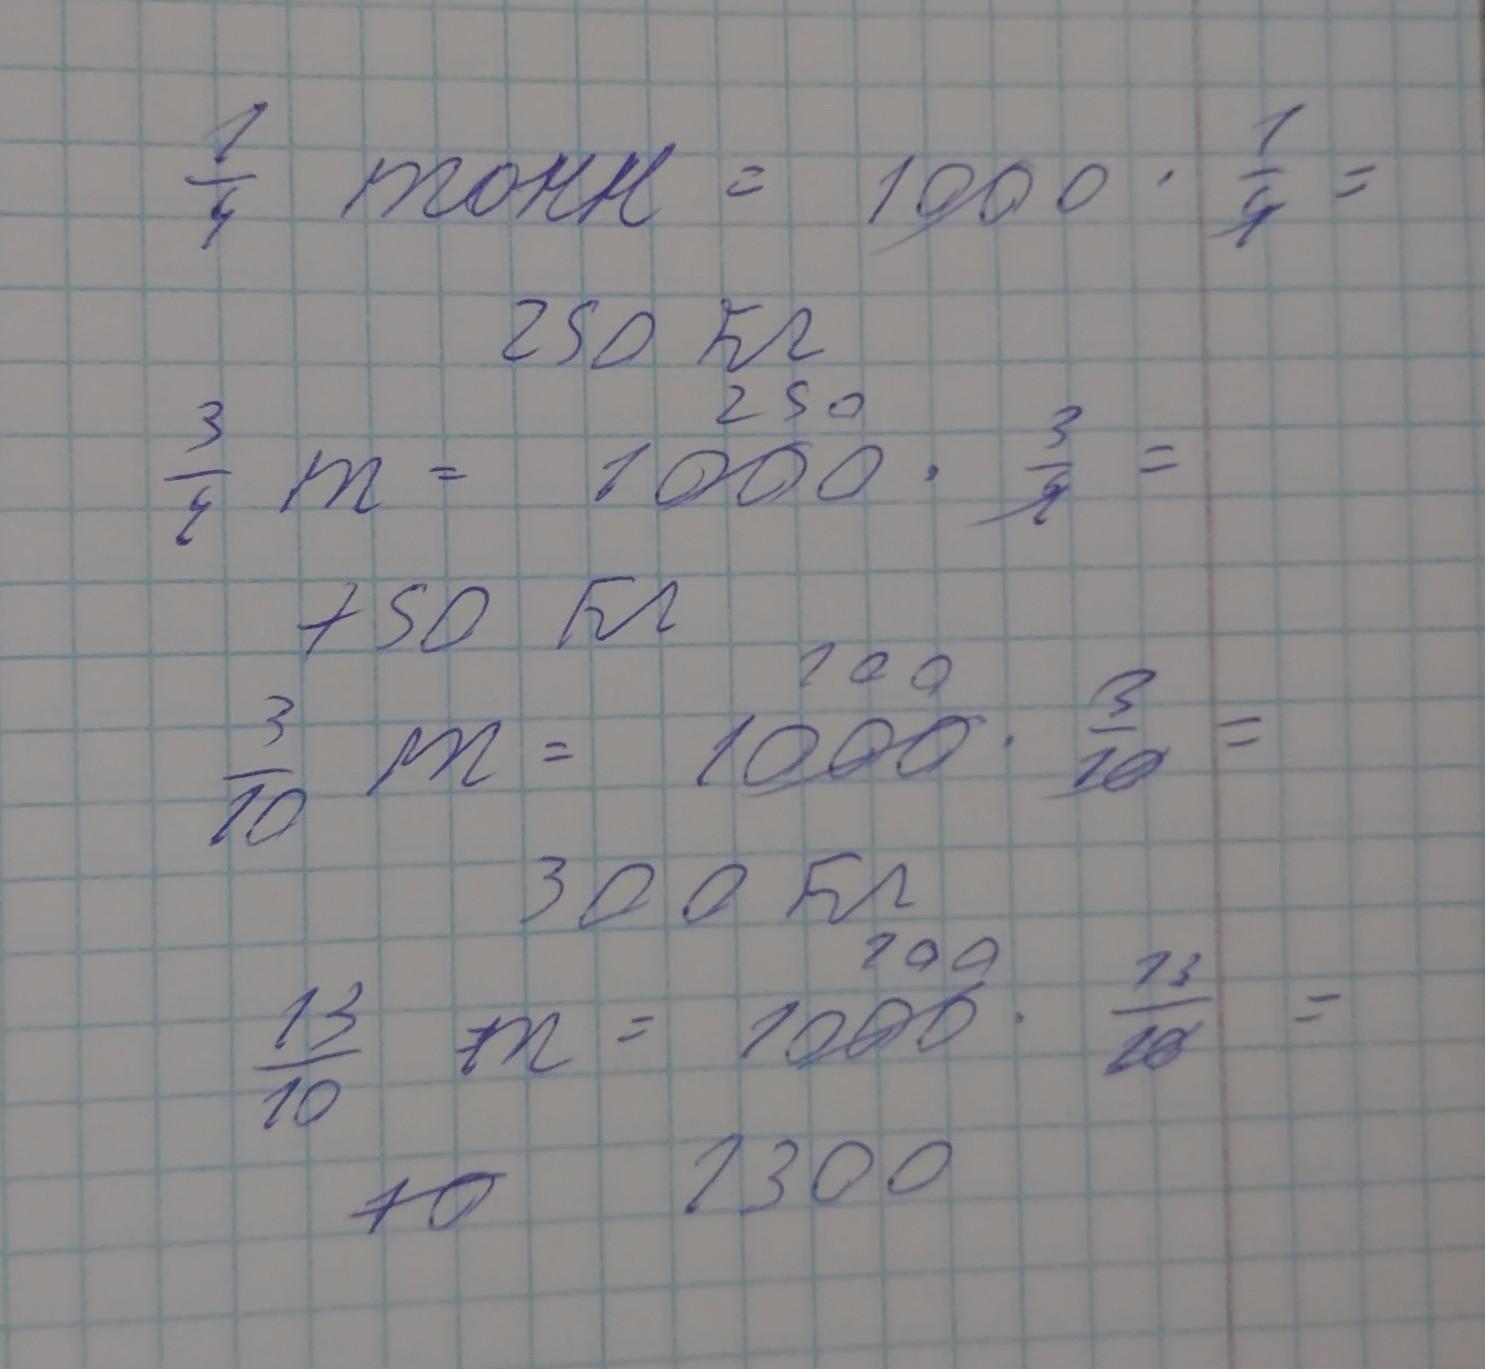 1/4 тонн = 1000 · 1/4 =
250 кг
250
3/4 т = 1000 · 3/4 =
750 кг
100
3/10 т = 1000 · 3/10 =
300 кг
100
13/10 т = 1000 · 13/10 =
70 1300